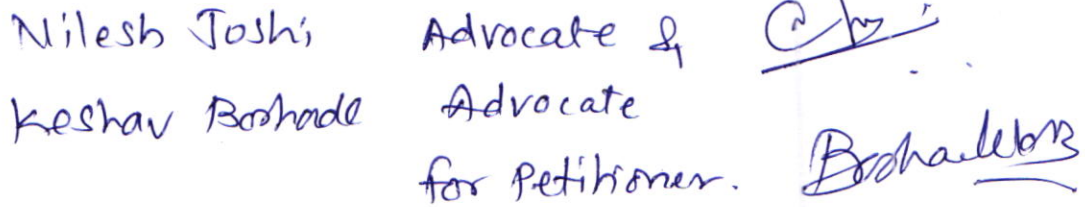 Nilesh Joshi Advocate &
Keshav Borhade Advocate
for Petitioner.